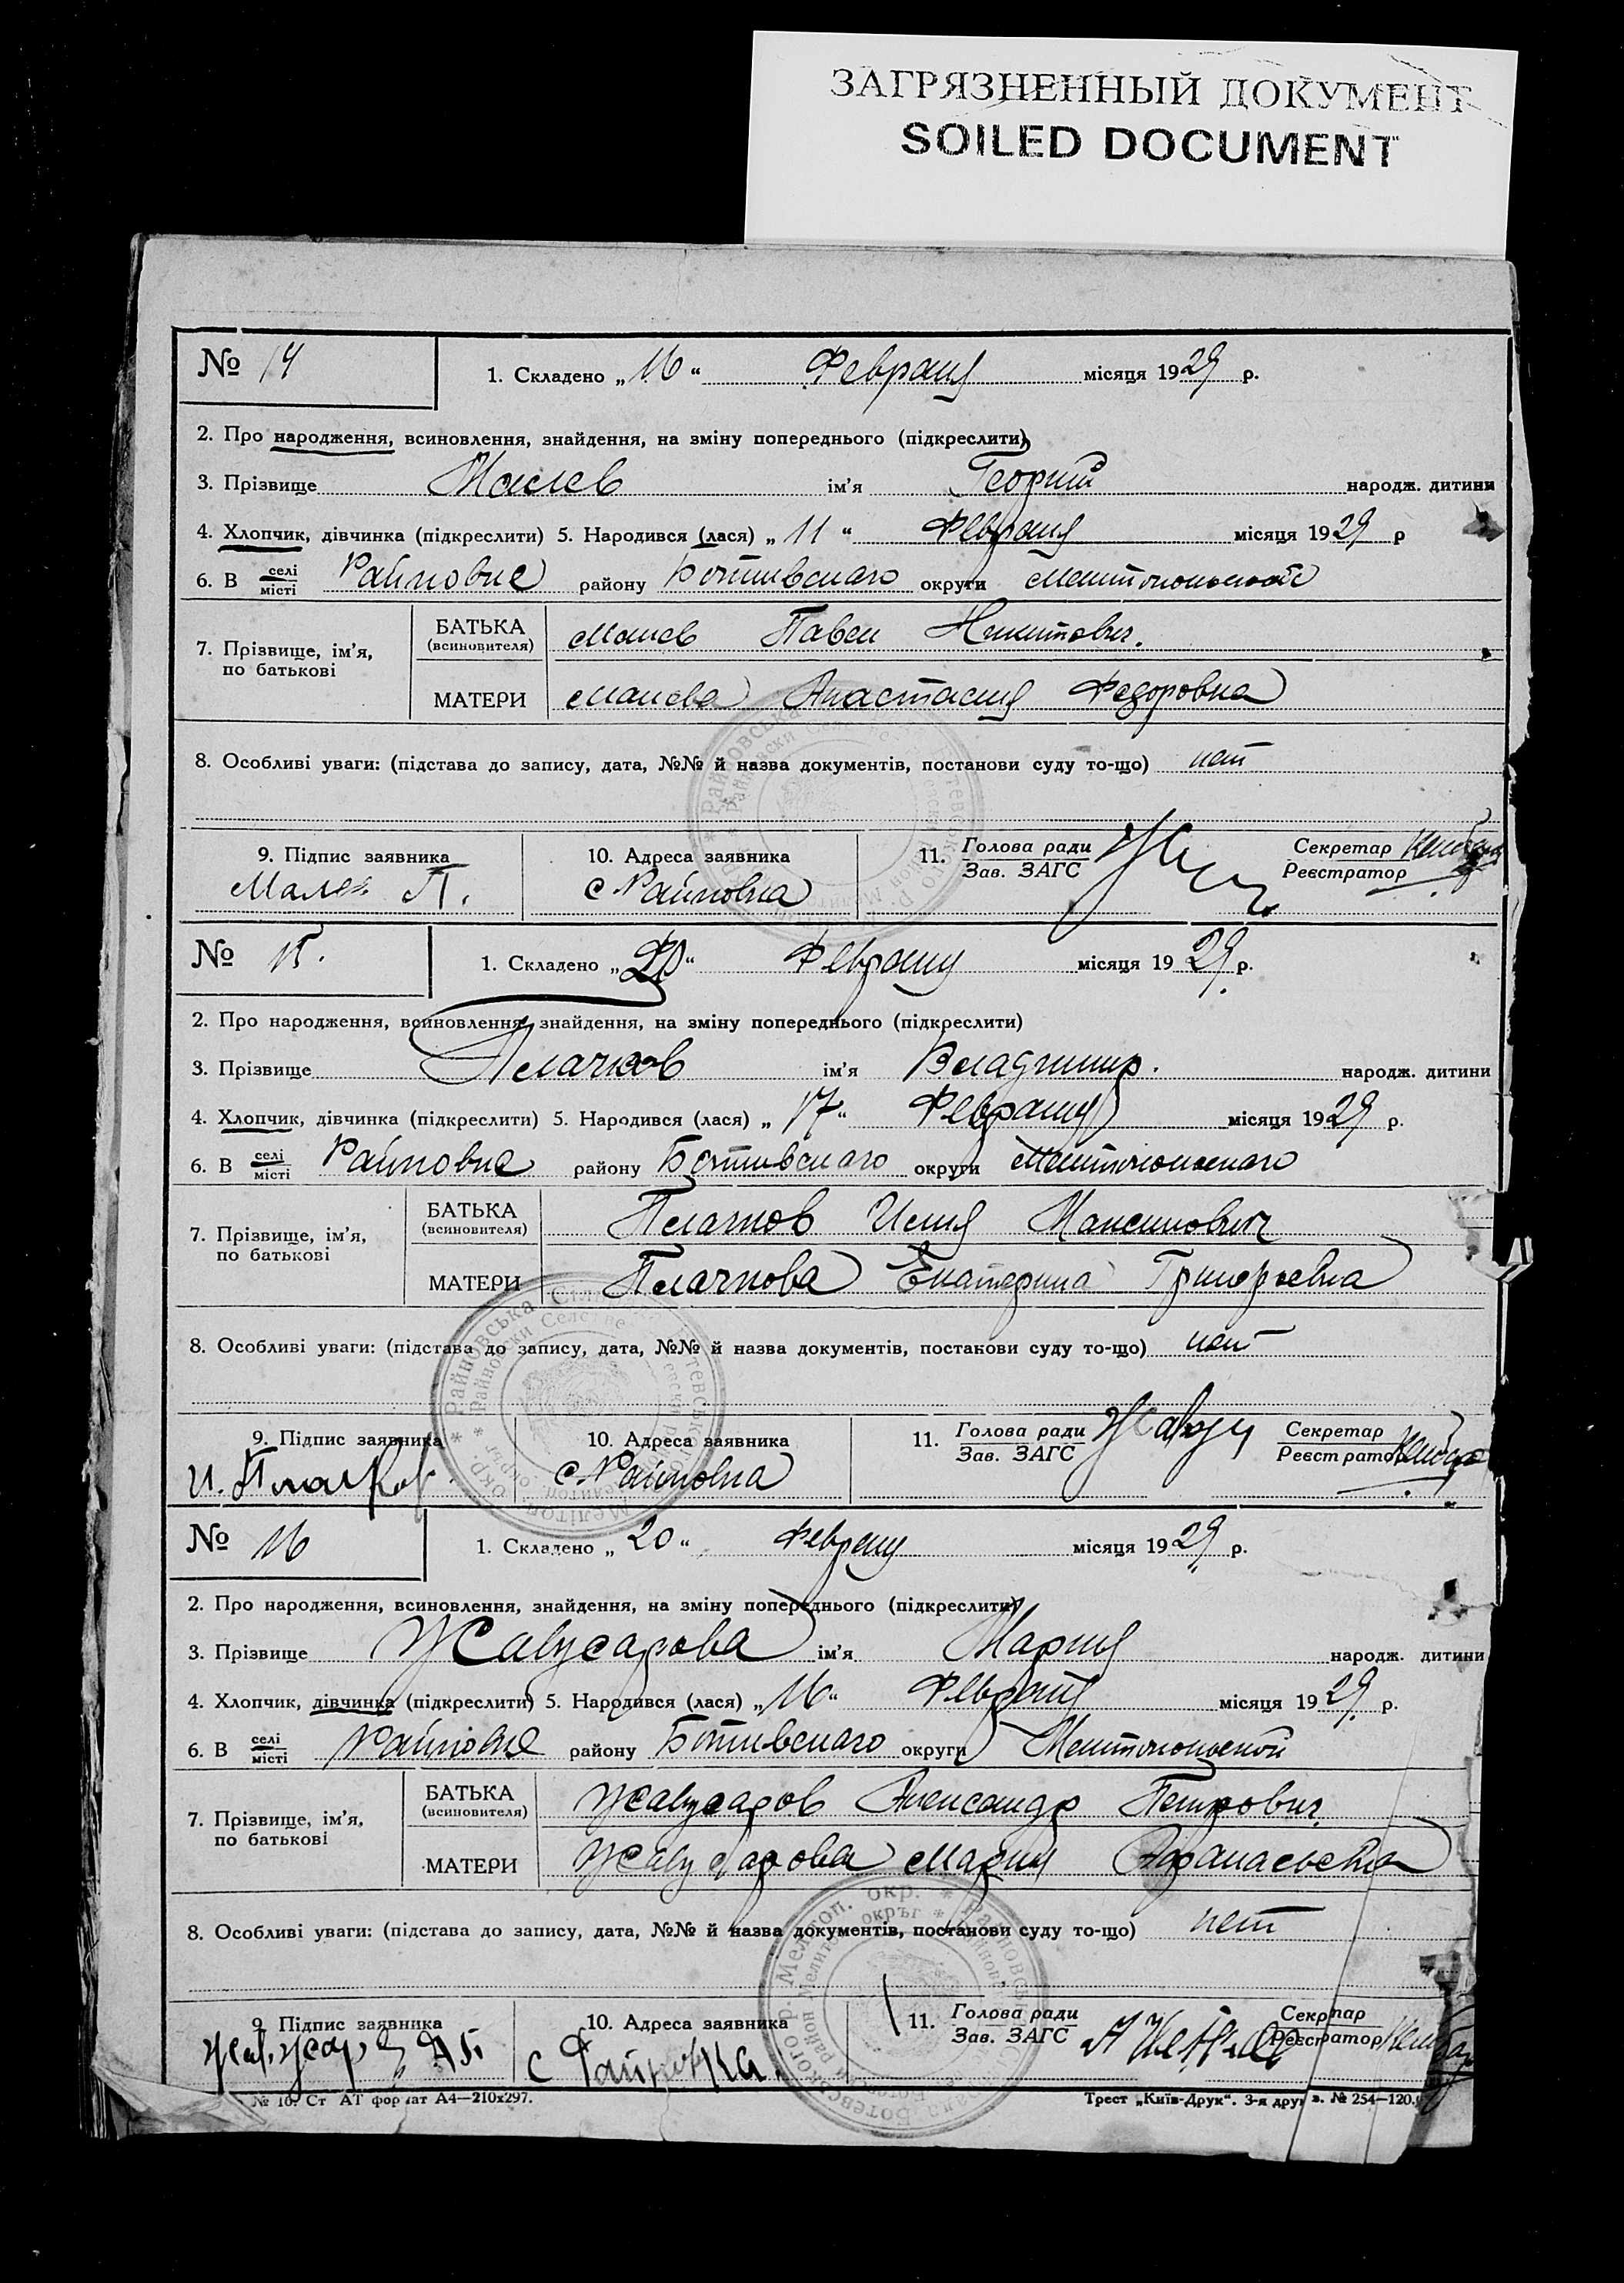 ЗАГРЯЗНЕННЫЙ ДОКУМЕНТ
SOILED DOCUMENT
№ 14 1. Складено „16“ Февраля місяця 1929 р.
2. Про народження, всиновлення, знайдення, на зміну попереднього (підкреслити)
3. Прізвище Малев ім'я Георгий народж. дитини
4. Хлопчик, дівчинка (підкреслити) 5. Народився (лася) „11“ Февраля місяця 1929 р
6. В селі місті Райновке району Ботивського округи
7. Прізвище, ім'я, по батькові
БАТЬКА (всиновителя) Малев Павел Никитович.
МАТЕРИ Малева Анастасия Федоровна
8. Особливі уваги: (підстава до запису, дата, №№ й назва документів, постанови суду то-що) нет
9. Підпис заявника 10. Адреса заявника 11. Голова ради Зав. ЗАГС Секретар Реєстратор
Малев П. с Райновка
№ 15. 1. Складено „20“ Февраля місяця 1929 р.
2. Про народження, всиновлення, знайдення, на зміну попереднього (підкреслити)
3. Прізвище Плачков ім'я Владимир. народж. дитини
4. Хлопчик, дівчинка (підкреслити) 5. Народився (лася) „17“ Февраля місяця 1929 р.
6. В селі місті Райновке району Ботивскаго округи Мелитопольскаго
7. Прізвище, ім'я, по батькові
БАТЬКА (всиновителя) Плачков Илия Максимович
МАТЕРИ Плачкова Екатерина Григорьевна
8. Особливі уваги: (підстава до запису, дата, №№ й назва документів, постанови суду то-що) нет
9. Підпис заявника 10. Адреса заявника 11. Голова ради Зав. ЗАГС Секретар Реєстратор
И. Плачков с. Райновка
№ 16 1. Складено „20“ Февраля місяця 1929 р.
2. Про народження, всиновлення, знайдення, на зміну попереднього (підкреслити)
3. Прізвище ім'я Мария народж. дитини
4. Хлопчик, дівчинка (підкреслити) 5. Народився (лася) „16“ Февраля місяця 1929 р.
6. В селі місті Райновке району Ботивскаго округи Мелитопольской
7. Прізвище, ім'я, по батькові
БАТЬКА (всиновителя) Александр Петрович
МАТЕРИ Мария Афанасьевна
8. Особливі уваги: (підстава до запису, дата, №№ й назва документів, постанови суду то-що) нет
9. Підпис заявника 10. Адреса заявника 11. Голова ради Зав. ЗАГС Секретар Реєстратор
с Райновка.
№ 16. Ст АТ формат А4—210х297. Трест „Київ-Друк“. 3-я друк